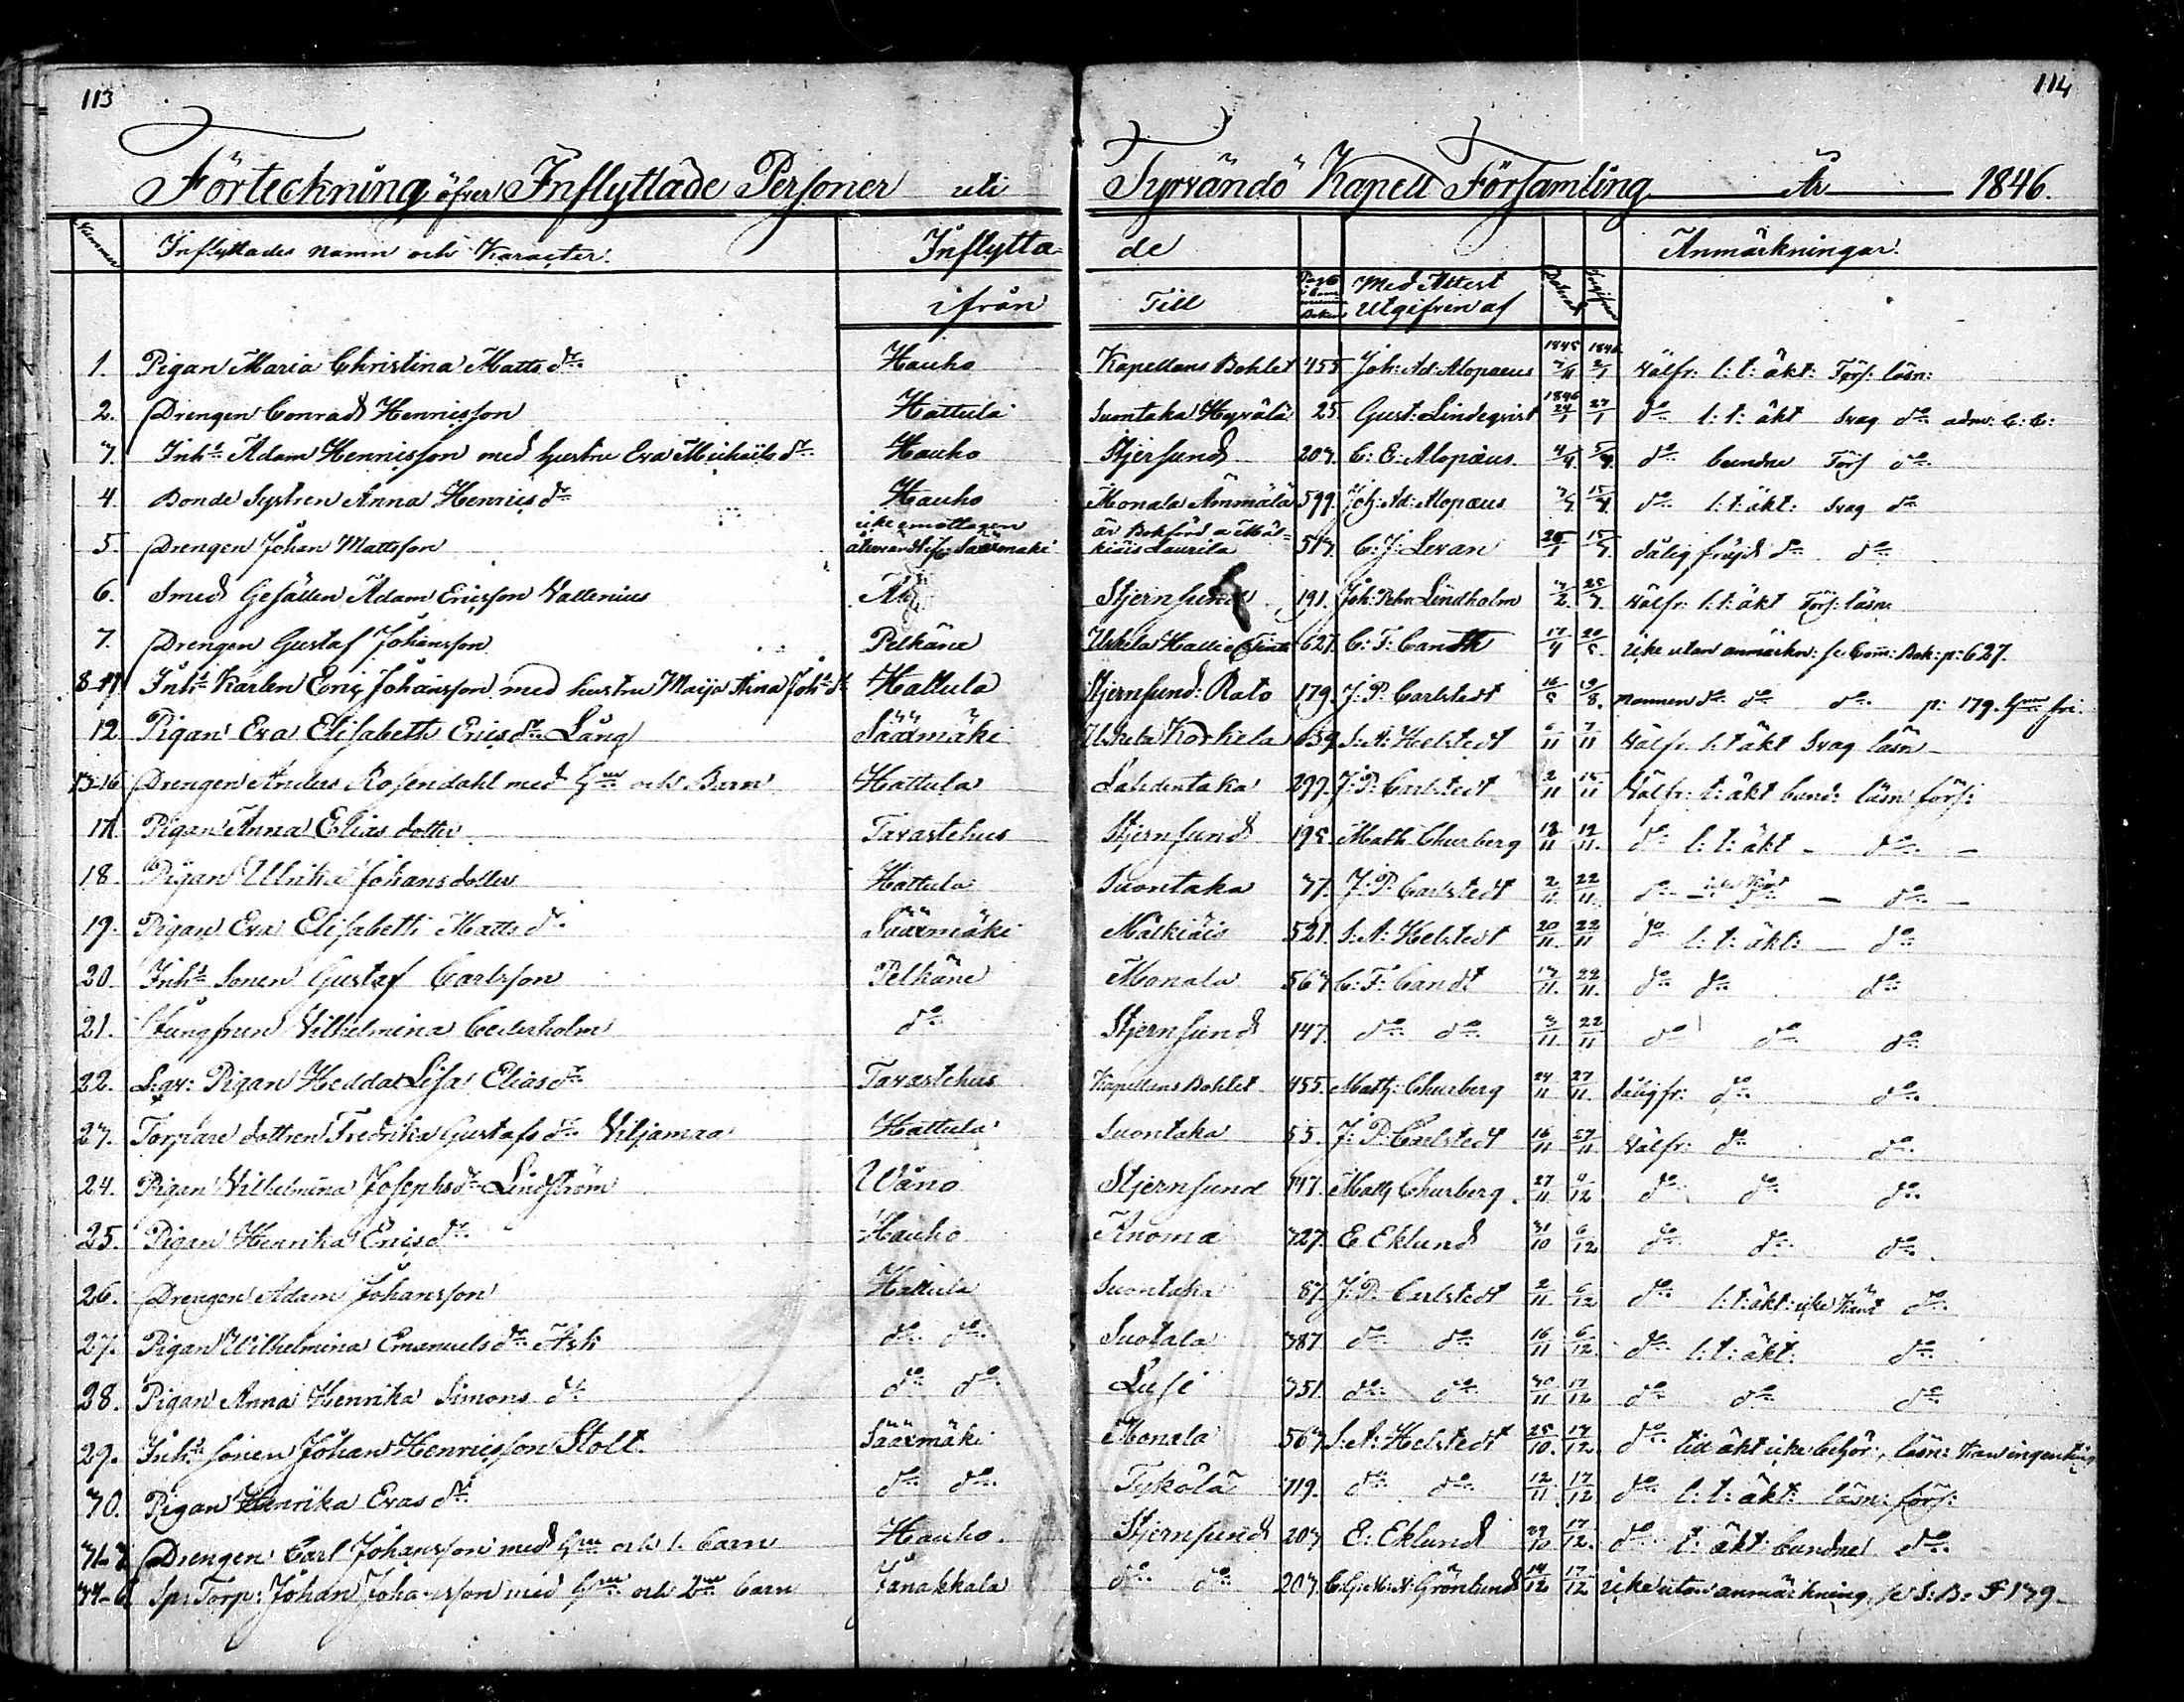 113
114
Förteckning öfver Inflyttade Personer uti Tyrvändö Kapell Församling År 1846.
Nummer Inflyttades namn och Karacter. Inflytta- de Anmärkningar.
ifrån Till Med Attest Utgifven af
1845 1846
1. Pigan Maria Christina Matts dr. Hauho Kapellans Bohlet 455 Joh: Ad: Alopaeus Välfr: l: t: äkt: Förs: läsn:
1846
2. Drengen Conrad Henricsson Hattula Suontaka Hyrälä 25. Gust: Lindeqvist 24/1 27/1 do l: t: äkt Svag do adm: C: C:
3. Inhs Adam Henricsson med hustru Eva Michaels dr. Hauho Stjersund 203. C: E: Alopæus. 4/4 5/4 do bundne Förs do
4. Bonde Systren Anna Henrics dr Hauho Monala Ämmälä 599. Joh: Ad: Alopæus 15/4 do l: t: äkt: Svag do
5. Drengen Johan Mattsson icke emottagen återvänd t: Säärmäki är Bokförd a Mälkiäis Laurila 513. C: J: Levan dålig fräjd do do
6. Smeds Gesällen Adam Ericsson Vallenius Stjernsund 191. Joh: Pehr Lindholm Välfr: l: t: äkt Förs: läsn:
7. Drengen Gustaf Johansson Pelkäne Uskela Hallic 627. C: F: Candt icke utan anmärkn: se Com: Bok: p: 627.
8-11 Inhs Karlen Eric Johansson med hustru Maija Stina Johs dr Hattula Stjernsund: Rato 179. J: P: Carlstedt 16/5 19/8. Mannen do do do p: 179. hun fri.
12 Pigan Eva Elisabeth Erics dr Lång Säärmäki Uskela Korkela 659 S: A: Helstedt 6/11 7/11 Välfr: l: t: äkt Svag läsn
13-16 Drengen Anders Rosendahl med hru och Barn Hattula Lahdentaka 299. J: P: Carlstedt 2/11 15/11 Välfr: t: äkt bund: läsn förs:
17. Pigan Anna Elias dotter Tavastehus Stjernsund 195 Math Churberg 12/11 19/11. do l: t: äkt - do -
18. Pigan Ulrika Johans dotter Hattula Suontaka 37. J: P: Carlstedt 2/11. 22/11. do - do -
19. Pigan Eva Elisabeth Matts dr. Säärmäki Mälkiäis 521. S: A: Helstedt 20/11. 22/11 do l: t: äkt: - do
20. Inhs Sonen Gustaf Carlsson Pelkäne Monala 563 C: F: Candt 13/11. 22/11. do do do
21. Jungfrun Vilhelmina Cederholm do Stjernsund 147. do do 3/11. 22/11 do do do
22. Lgr: Pigan Hedda Lisa Elias dr Tavastehus Kapellans Bohlet 455. Math: Churberg 24/11 27/11. dålig fr: do do
23. Torpare dottren Fredrika Gustafs dr. Viljamaa Hattula Suontaka 55. J: P: Carlstedt 16/11 Välfr: do do
24. Pigan Vilhelmina Josephs dr Lindström Wåno Stjernsund 147. Math Churberg. 27/11 4/12 do do do
25. Pigan Henrika Erics dr. Hauho Knoma 327. E Eklund 31/10 6/12 do do do
26. Drengen Adam Johansson Hattula Suontaka 87. J: P: Carlstedt 2/11. 6/12 do l: t: äkt: icke känt do
27. Pigan Wilhelmina Emanuels dr Ask do do Suotala 387 do do 16/11 6/12. do l: t: äkt: do
28. Pigan Anna Henrika Simons dr do do Lusi 351. do do 30/11 17/12 do do do
29. Inhs sonen Johan Henricsson Stolt. Säärmäki Monala 563 S: A: Helstedt 25/10. 17/12. do till äkt icke behör:, läsn: kan ingenting
30. Pigan Henrika Evas dr do do Tykölä 719. do do 12/11. 17/12. do l: t: äkt: läsn: förs:
31-3 Drengen Carl Johansson med hru och 1. barn Hauho. Stjernsund 203 E: Eklund 29/10 17/12. do t: äkt: bundne do
34-6 Sp: Torp: Johan Johansson med hru och 2ne barn Janakkala do do 203 Grönlund 14/12 17/12 icke utan anmärkning, se S: B: F 139